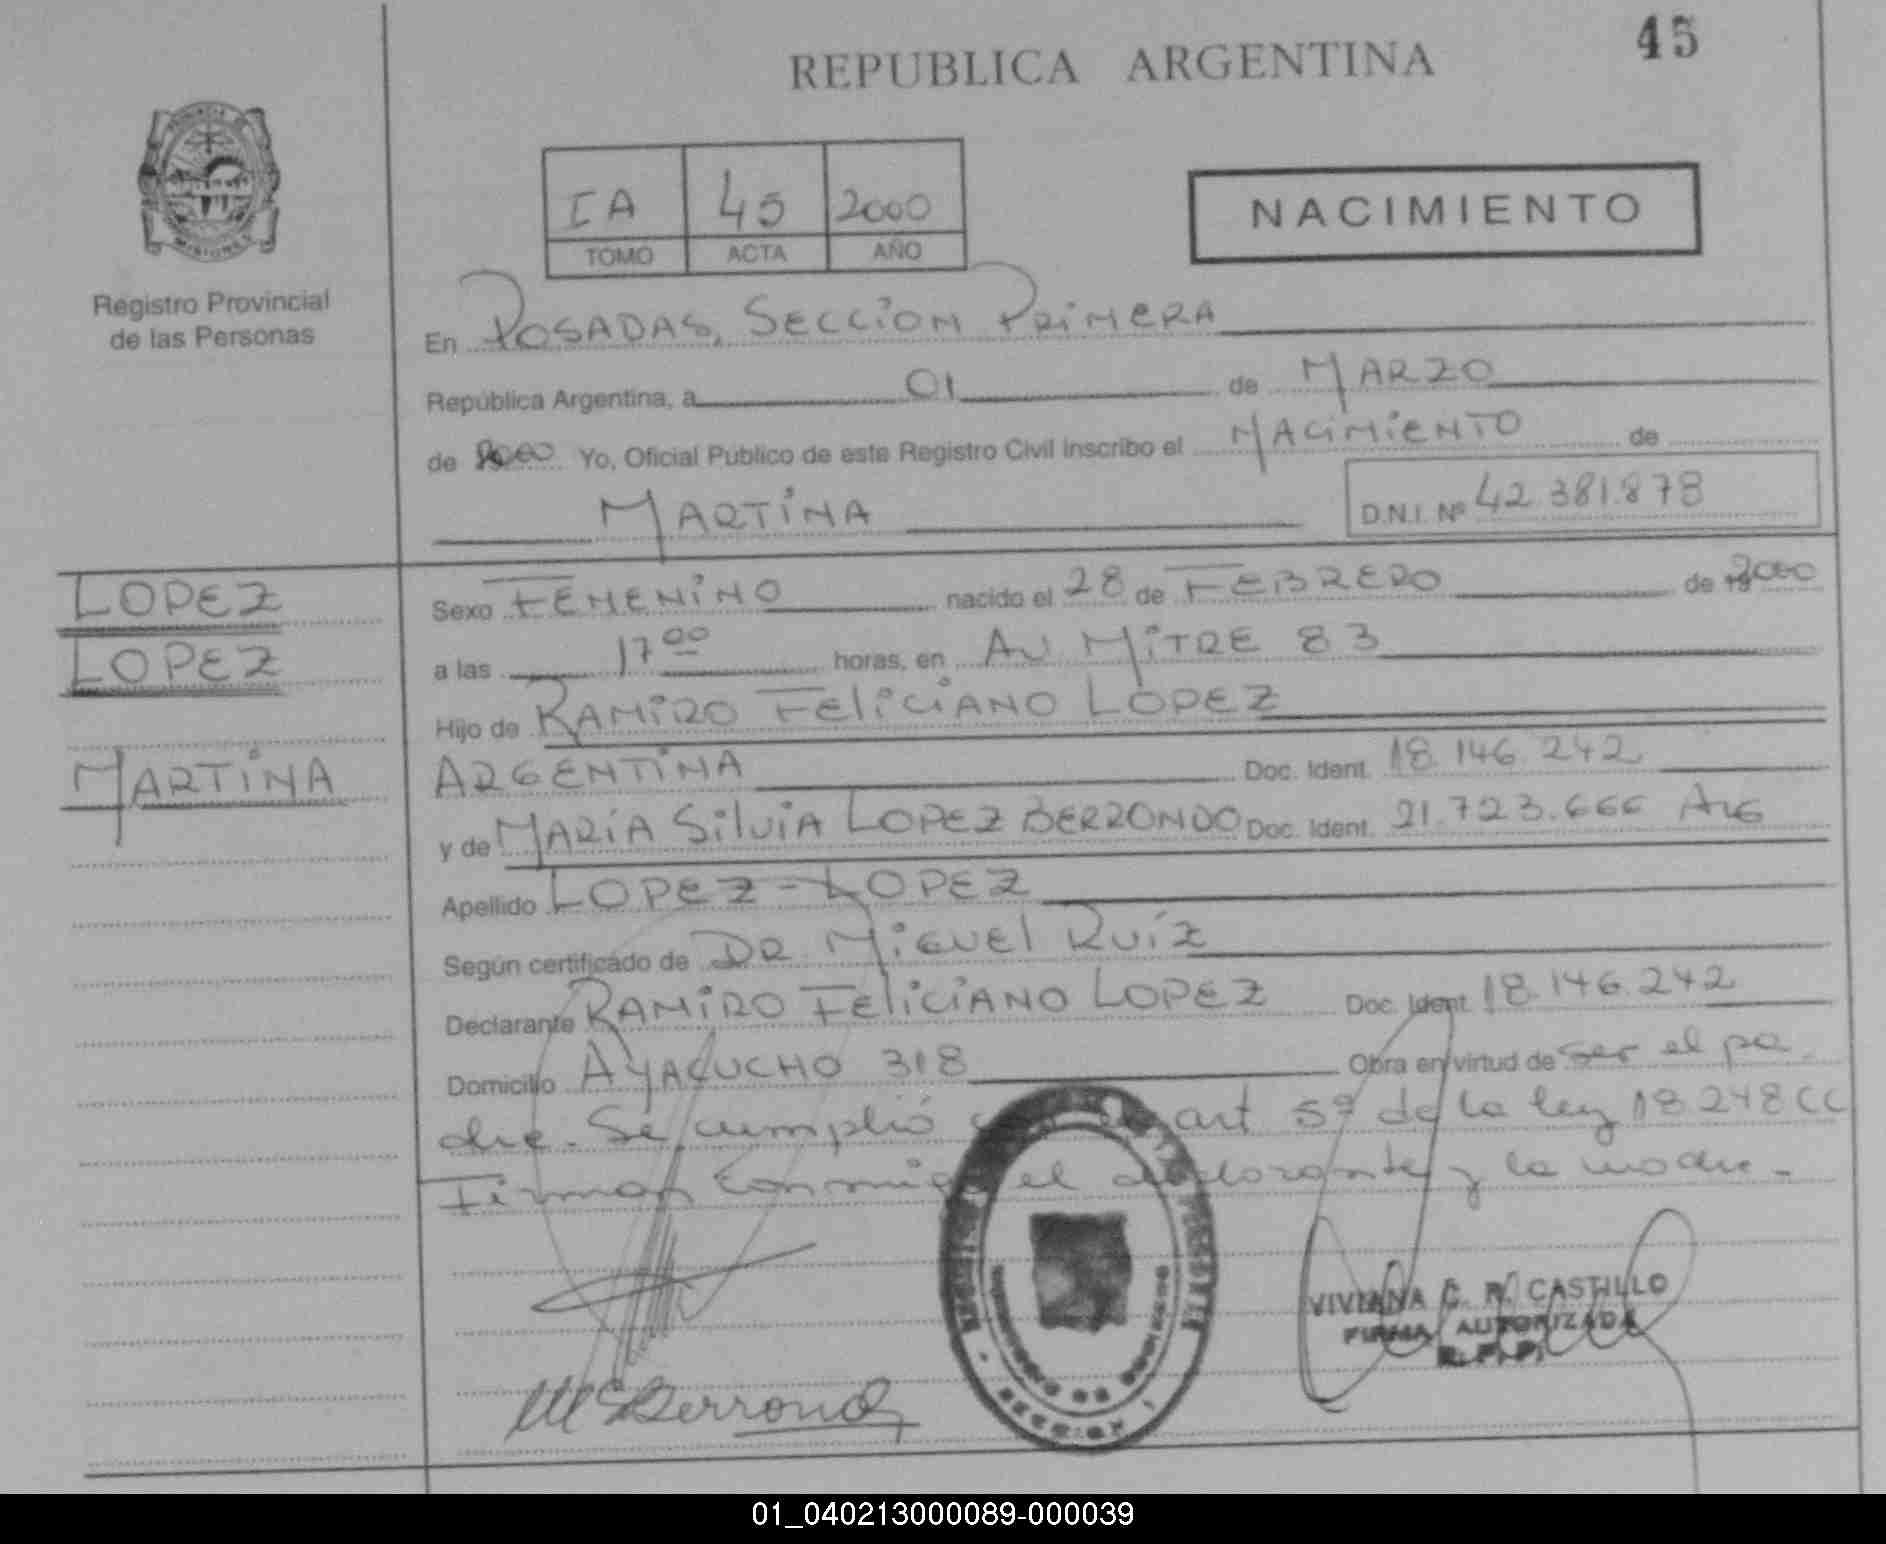 REPUBLICA ARGENTINA
45
IA 45 2000
TOMO ACTA AÑO
NACIMIENTO
MISIONES
Registro Provincial
de las Personas
En POSADAS, SECCION PRIMERA
República Argentina, a 01 de MARZO
de 2000 Yo, Oficial Público de este Registro Civil Inscribo el NACIMIENTO de
MARTINA D.N.I. Nº 42 381.878
LOPEZ
LOPEZ
MARTINA
Sexo FEMENINO nacido el 28 de FEBRERO de 2000
a las 17 00 horas, en AV MITRE 83
Hijo de RAMIRO FELICIANO LOPEZ
ARGENTINA Doc. Ident. 18.146.242
y de MARÍA SILVIA LOPEZ BERRONDO Doc. Ident. 21.723.666 ARG
Apellido LOPEZ - LOPEZ
Según certificado de DR. MIGUEL RUÍZ
Declarante RAMIRO FELICIANO LOPEZ Doc. Ident. 18.146.242
Domicilio AYACUCHO 318 Obra en virtud de ser el pa-
dre. Se cumplió art 5º de la ley 18.248 CC
Firman conmigo el declarante y la madre -
VIVIANA C. R. CASTILLO
FIRMA AUTORIZADA
R. P. P.
01_040213000089-000039